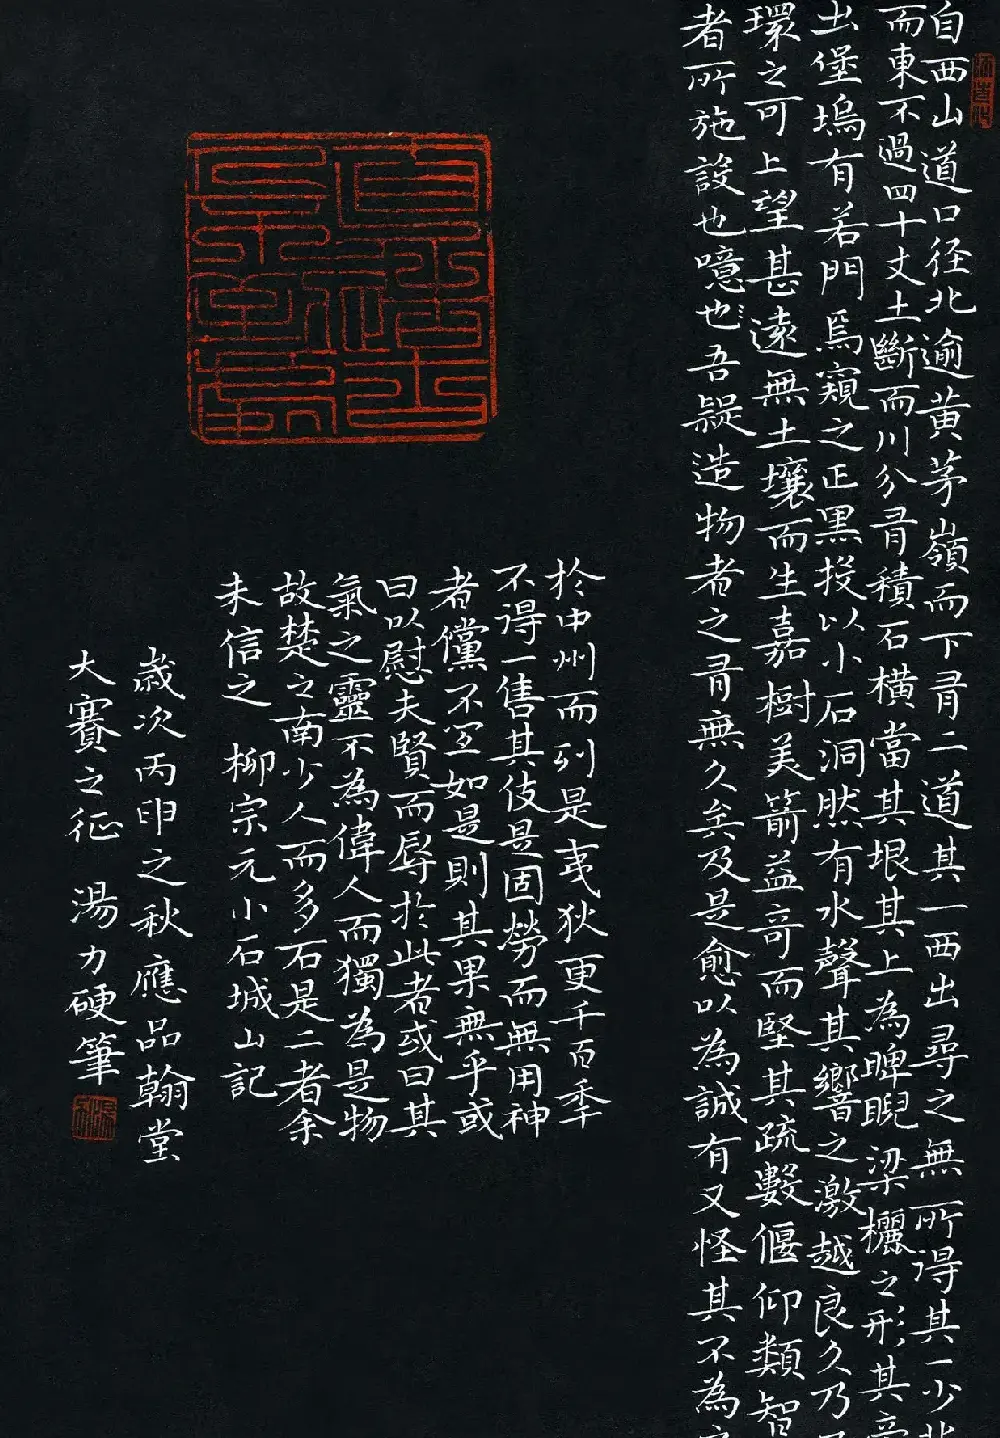 自西山道口径北逾黄茅嶺而下有二道其一西出尋之無所得其一少北
而東不過四十丈土斷而川分有積石橫當其垠其上為睥睨梁欐之形其旁
出堡塢有若門焉窺之正黑投以小石洞然有水聲其響之激越良久乃
環之可上望甚遠無土壤而生嘉樹美箭益奇而堅其疏數偃仰類智
者所施設也噫也吾疑造物者之有無久矣及是愈以為誠有又怪其不為之
於中州而列是夷狄更千百年
不得一售其伎是固勞而無用神
者儻不宜如是則其果無乎或
曰以慰夫賢而辱於此者或曰其
氣之靈不為偉人而獨為是物
故楚之南少人而多石是二者余
未信之 柳宗元小石城山記
歲次丙申之秋應品翰堂
大賽之征 湯力硬筆